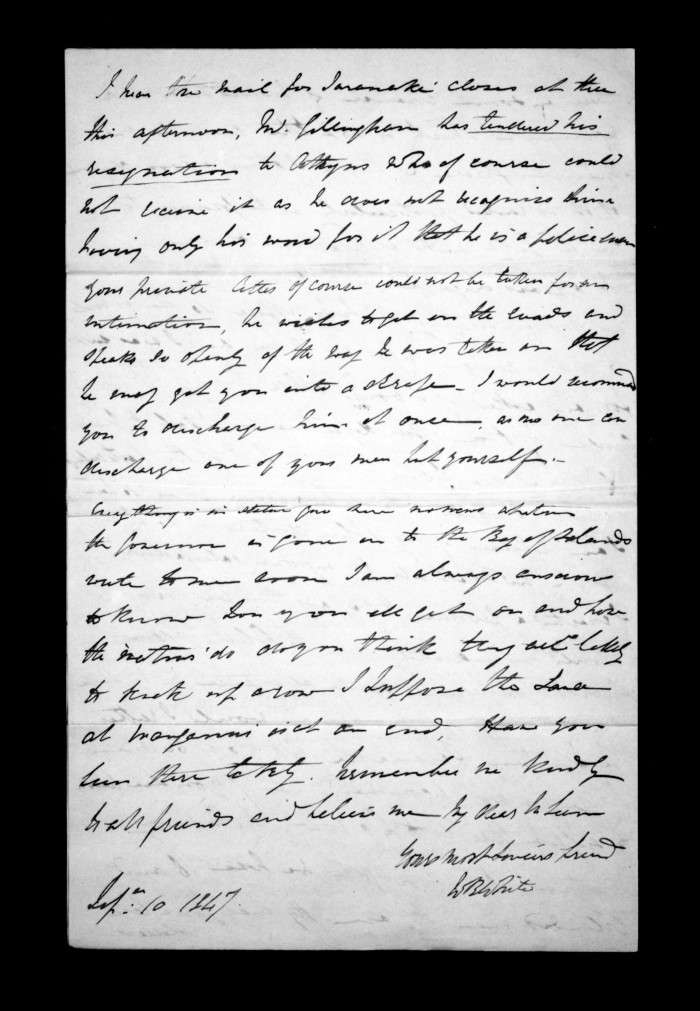 I hear the mail for Taranaki closes at three
this afternoon, Mr. Gillingham has tendered his
resignation to who of course could
not receive it as he does not recognise him
having only his word for it that he is a policeman
your private of course could not be taken for an
intimation, he wishes to get on the roads and
speaks so openly of the way he was taken on that
he may get you into a scrape - I would recommend
you to discharge him at once, as no one can
discharge one of your men but yourself. -
Every thing is in statu quo here no news whatever
the Governor is gone on to the Bay of Islands
write to me soon I am always anxious
to know how you all get on and how
the natives do do you think they are likely
to kick up a row I suppose the
at Wanganui is at an end, Have you
been there lately. Remember me kindly
to all friends and believe me My dear McLean
Yours most sincere friend
W B White
Sepr. 10 1847.